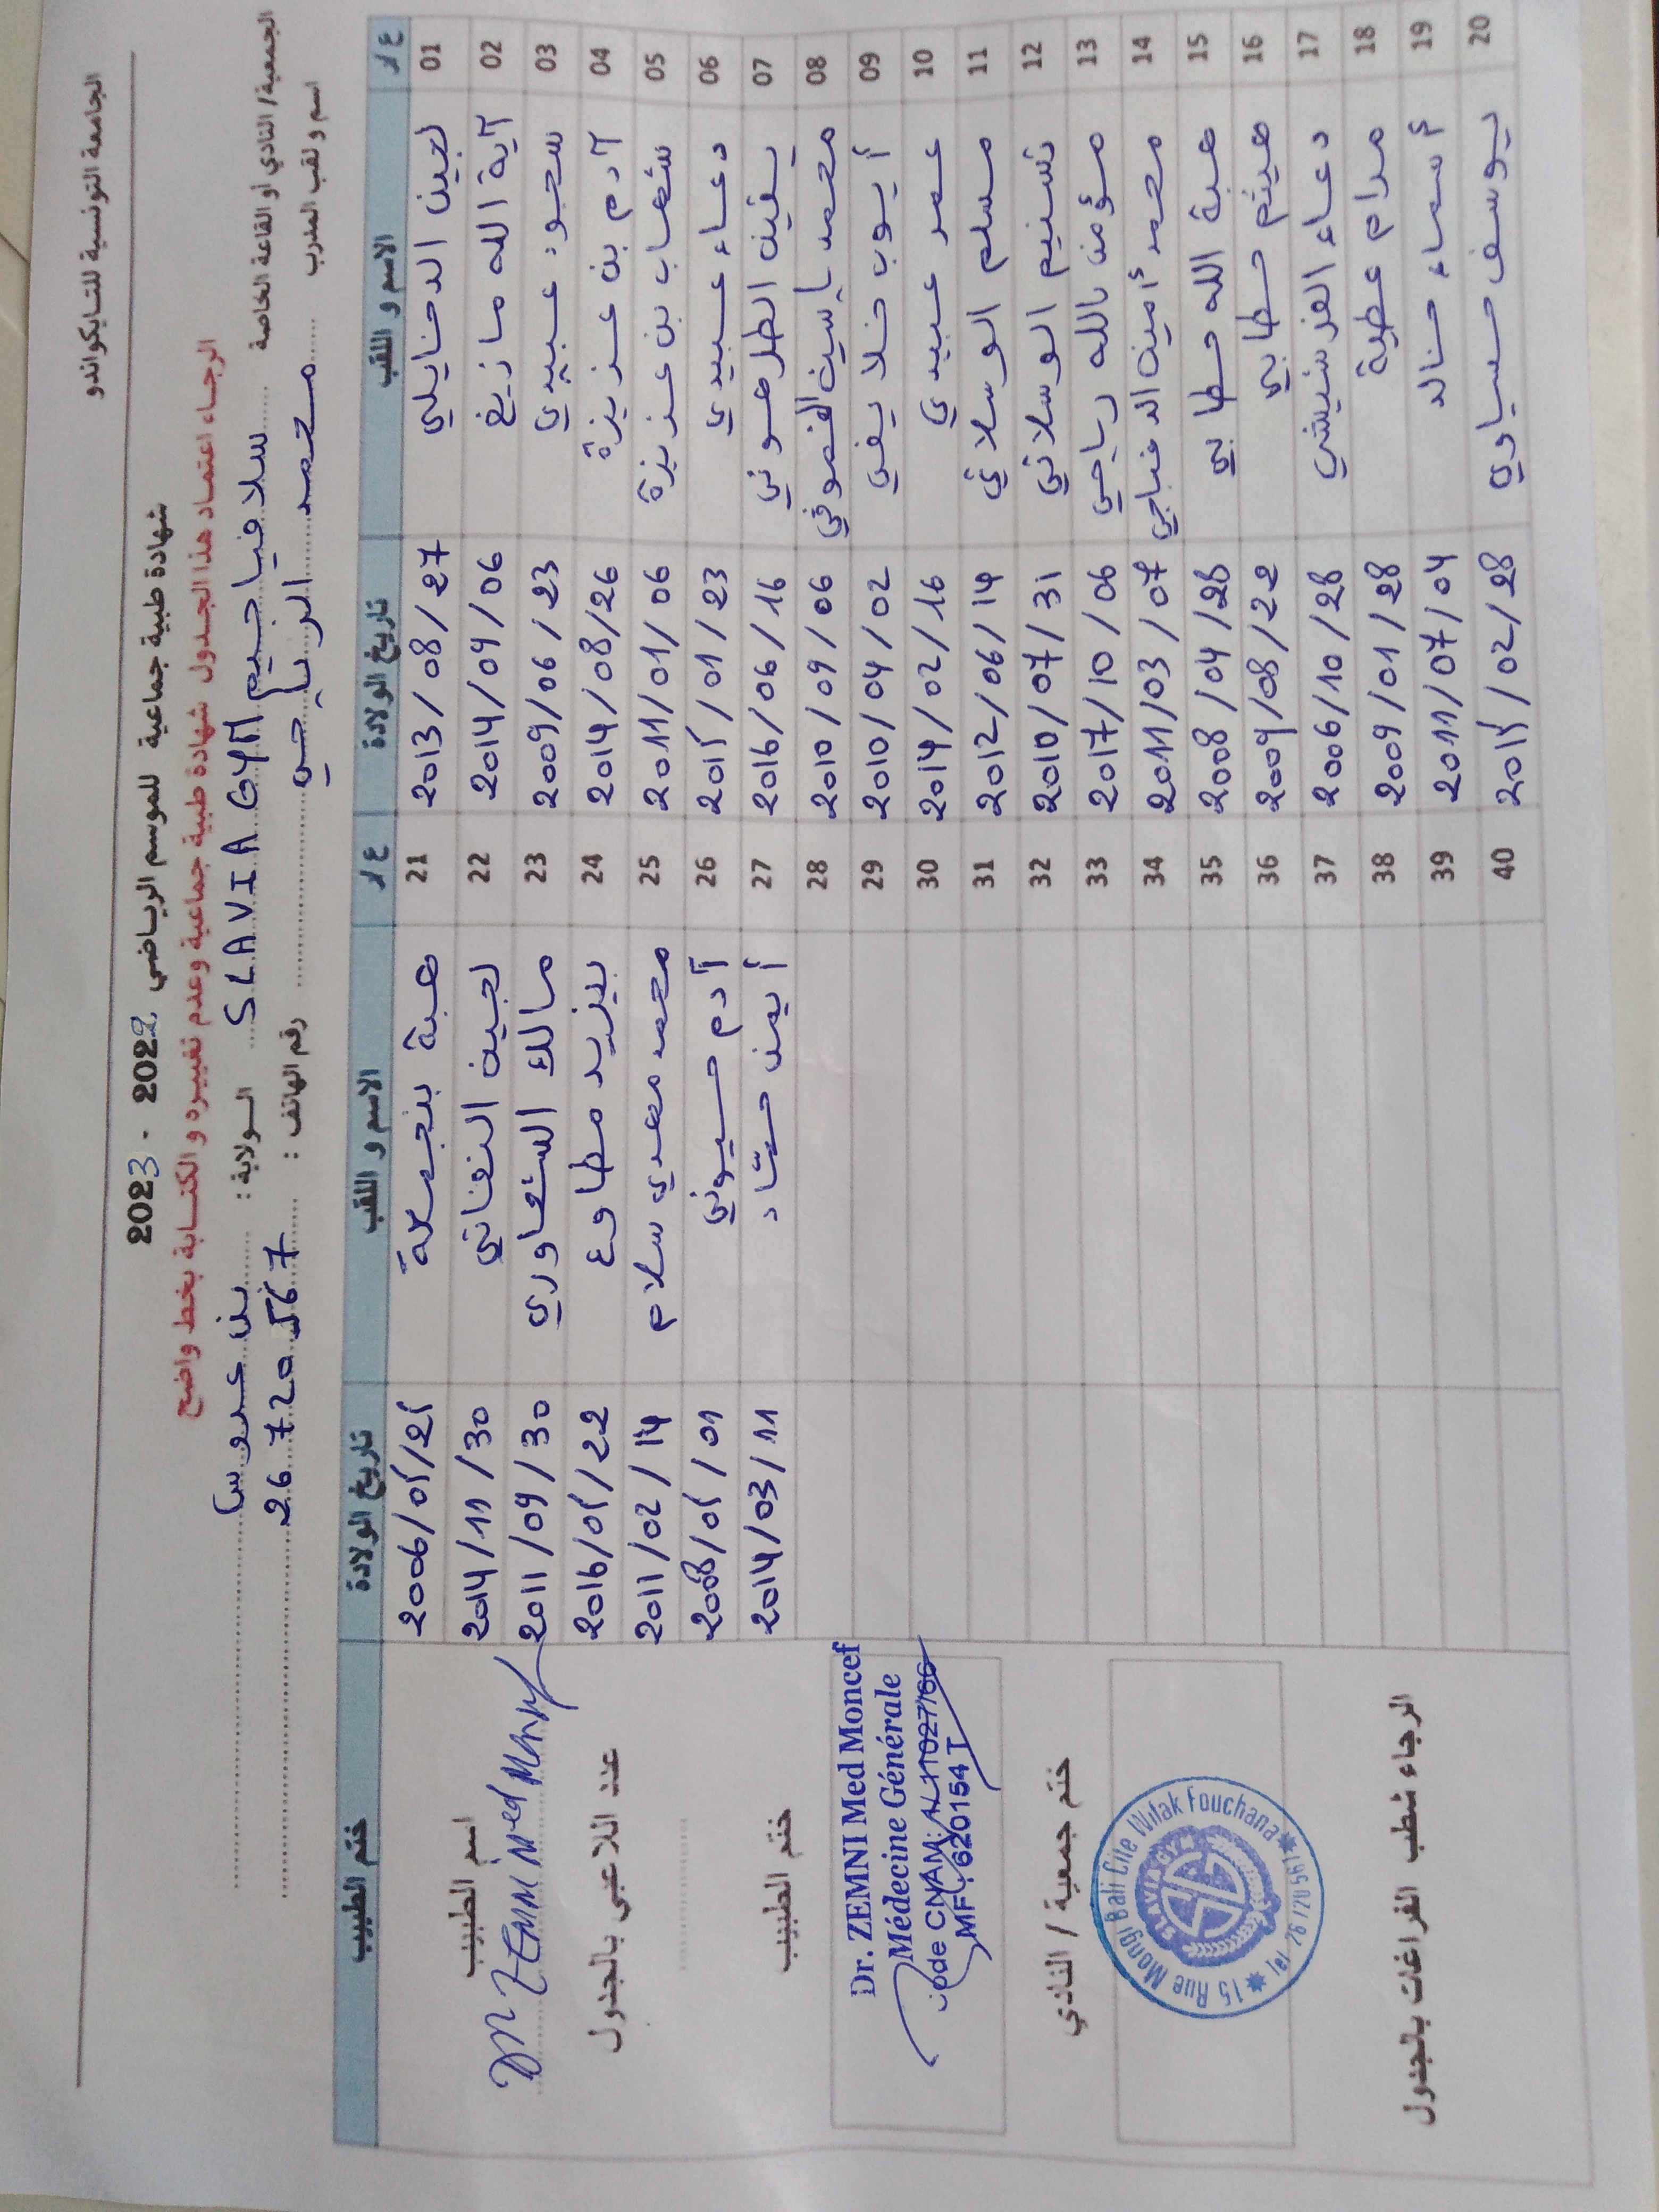 الجامعة التونسية للتايكواندو
شهادة طبية جماعية للموسم الرياضي 2022 - 2023
الرجاء اعتماد هذا الجدول شهادة طبية جماعية وعدم تغييره و الكتابة بخط واضح
الجمعية/ النادي او القاعة الخاصة سلافيا جيم SLAVIA GYM الولاية : بن عروس
اسم و لقب المدرب محمد الرياحي رقم الهاتف : 26 720 567
ع/ر الاسم و اللقب تاريخ الولادة ع/ر الاسم و اللقب تاريخ الولادة ختم الطبيب
01 لجين الدخايلي 2013/08/27 21 هبة بنجمعة 2006/05/25
02 آية الله مازيغ 2014/09/06 22 لجين النفاتي 2014/11/30
03 سجود عبيدي 2009/06/23 23 مالك الشعاوري 2011/09/30
04 آدم بن عزيزة 2014/08/26 24 يزيد مطاوع 2016/05/22
05 شهاب بن عزيزة 2011/01/06 25 محمد مهدي سلام 2011/02/14
06 دعاء عبيدي 2015/01/23 26 آدم حسيوني 2008/05/01
07 يقين الطرهوني 2016/06/16 27 أيمن حشاد 2014/03/11
08 محمد ياسين الغموقي 2010/09/06 28
09 أيوب خلايفي 2010/04/02 29
10 عمر عبيدي 2014/02/16 30
11 مسلم الوسلاتي 2012/06/14 31
12 تسنيم الوسلاتي 2010/07/31 32
13 مؤمن بالله رياحي 2017/10/06 33
14 محمد أمين الدغباجي 2011/03/07 34
15 هبة الله حطابي 2008/04/28 35
16 هيثم حطابي 2009/08/22 36
17 دعاء الفرشيشي 2006/10/28 37
18 مرام عطية 2009/01/28 38
19 أسماء خالد 2011/07/04 39
20 يوسف حسياوي 2015/02/28 40
اسم الطبيب
Dr ZEMNI Med Moncef
عدد اللاعبي بالجدول
ختم الطبيب
Dr. ZEMNI Med Moncef
Médecine Générale
code CNAM: 
MF: 620154 T
ختم جمعية / النادي
15 Rue Mongi Bali Cite Wifak Fouchana
SLAVIA GYM
Tel 26 720 567
الرجاء شطب الفراغات بالجدول